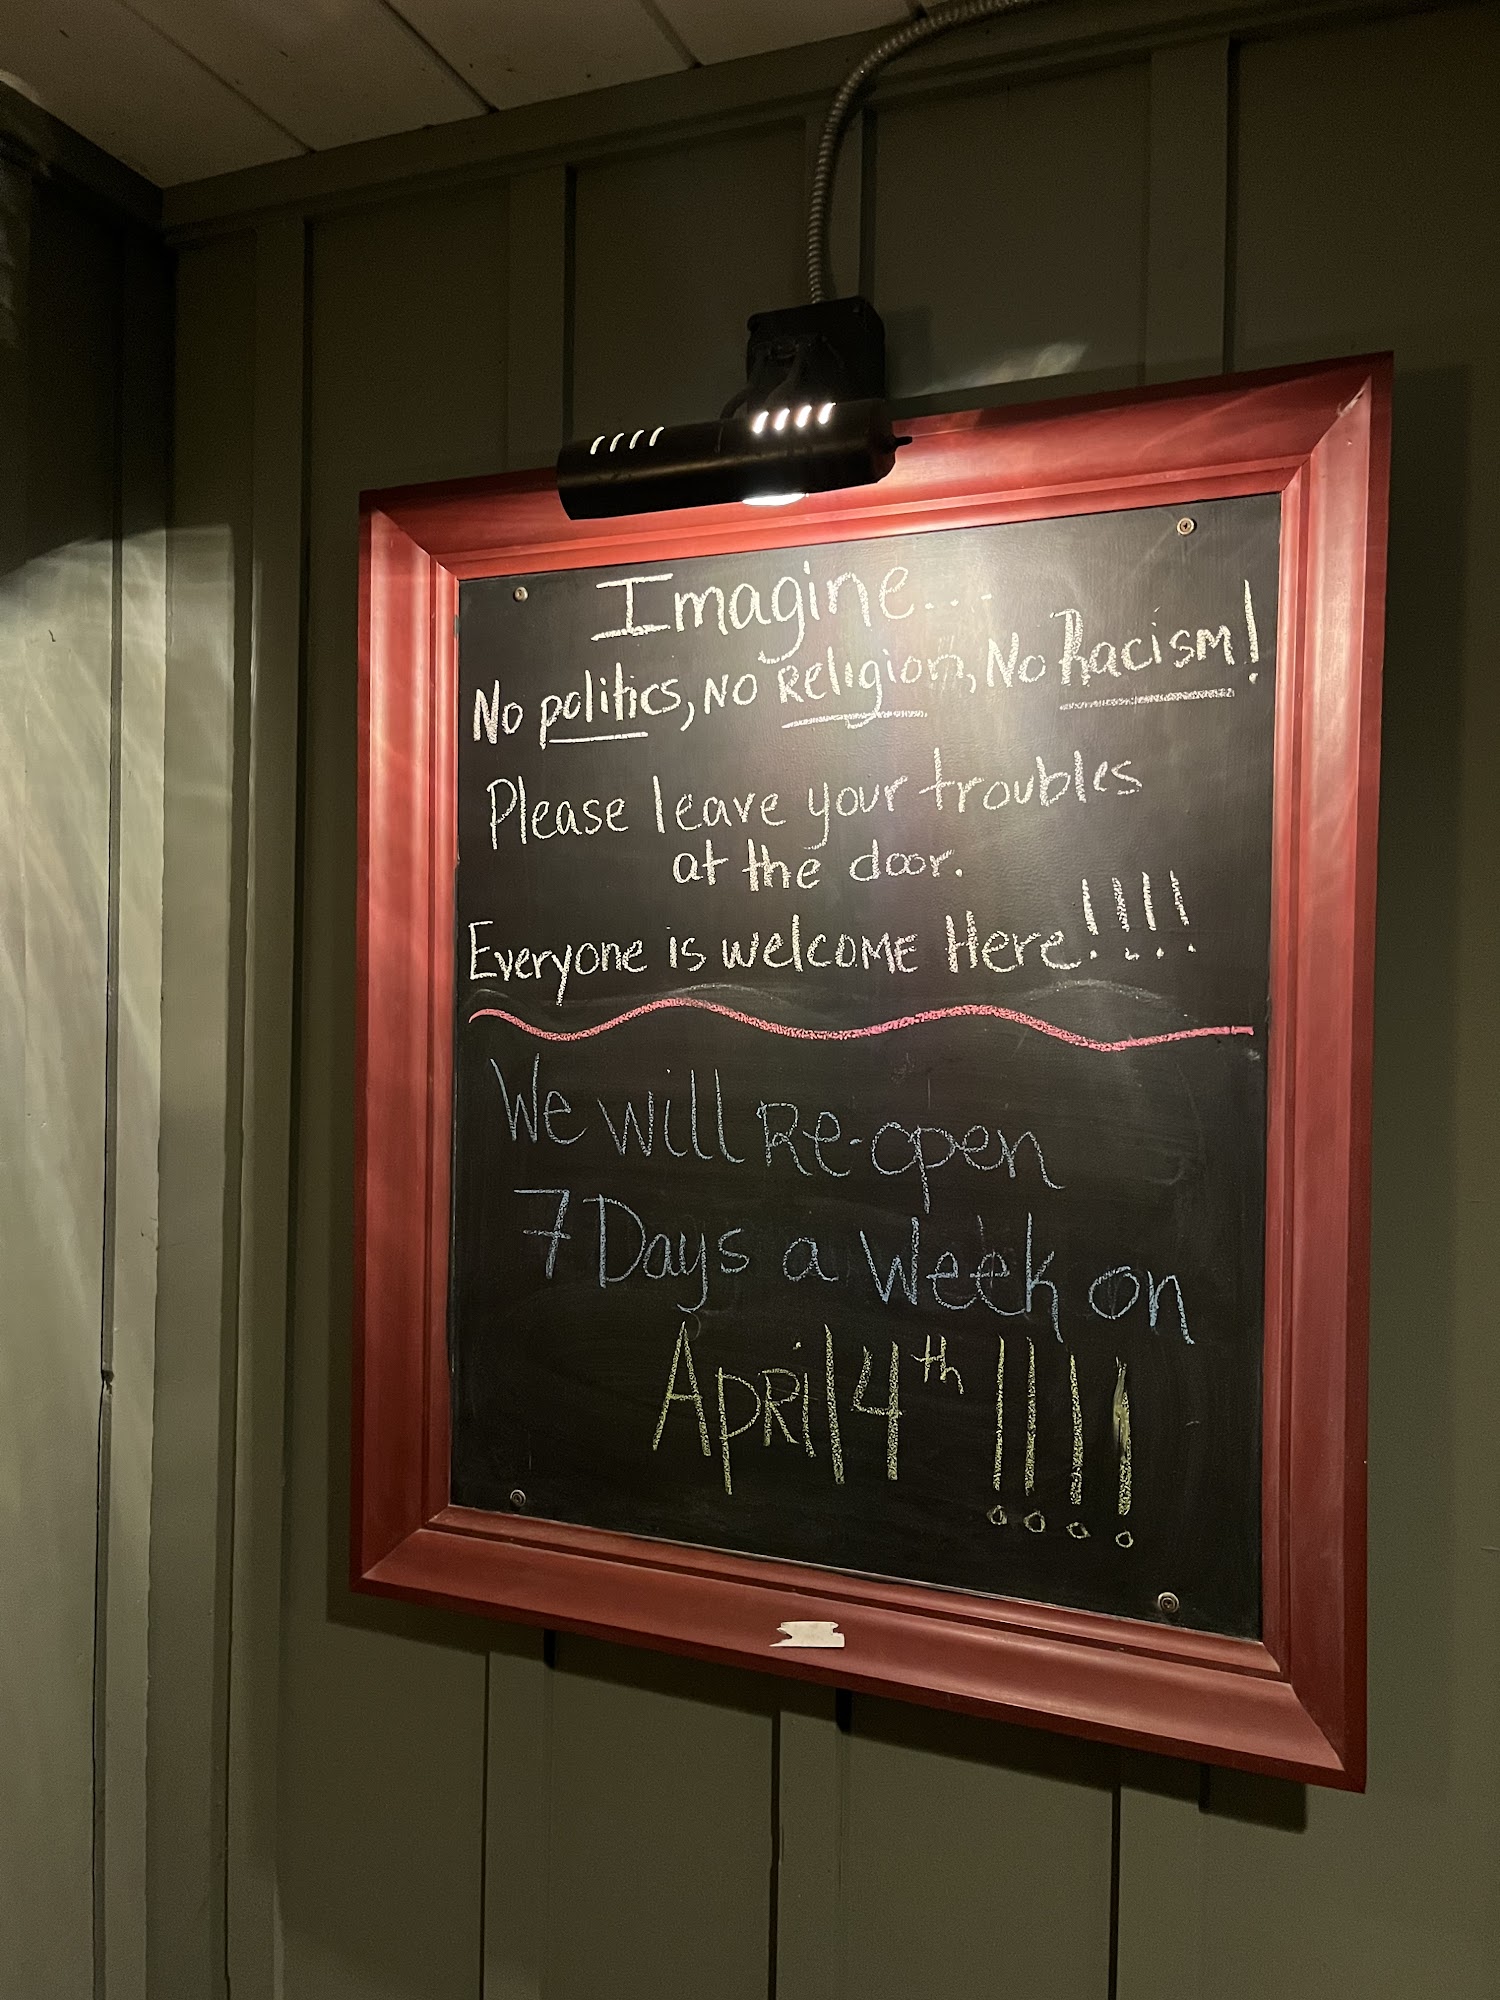 Imagine....
No politics, NO Religion, No Racism!
Please leave your troubles
at the door.
Everyone is welcome Here!!!!
We will Re-open
7 Days a Week on
April 4th !!!!